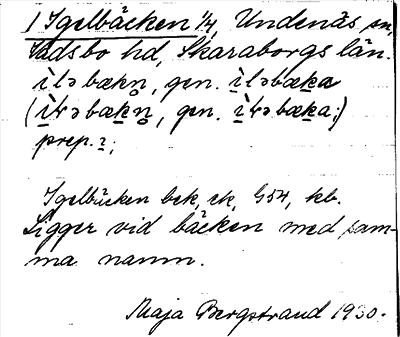 1 Igelbäcken 1/4, Undenäs sn,
Vadsbo hd, Skaraborgs län.
ìlǝbækn̥, gen. ìlǝbæka
(ìɫǝbækn̥, gen. ìɫǝbæka;)
prep. i;
Igelbäcken bek, ek, G54, kb.
Ligger vid bäcken med sam-
ma namn.
Maja Bergstrand 1930.